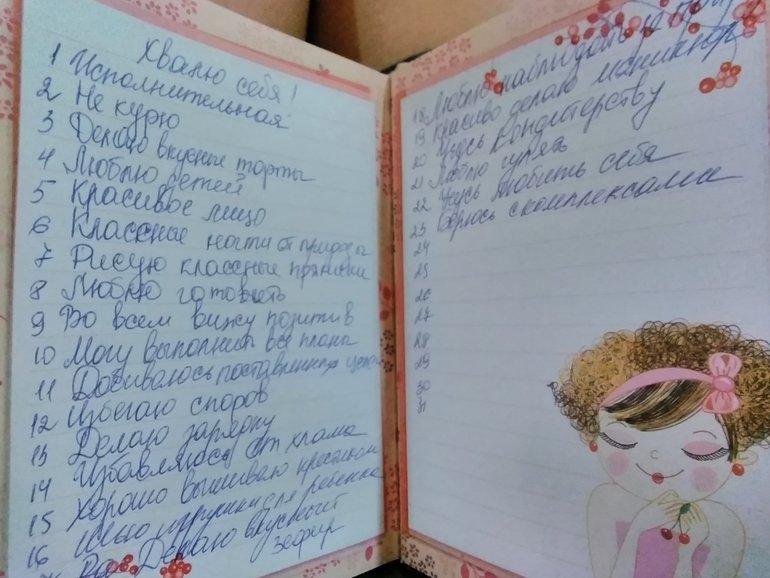 Хвалю себя!
1 Исполнительная
2 Не курю
3 Делаю вкусные торты
4 Люблю детей
5 Красивое лицо
6 Классные ногти от природы
7 Рисую классные пряники
8 Люблю готовить
9 Во всем вижу позитив
10 Могу выполнить все планы
11 Добиваюсь поставленную цель
12 Избегаю споров
13 Делаю зарядку
14 Избавляюсь от хлама
15 Хорошо вышиваю крестиком
16 Шью игрушки для ребенка
Делаю вкусный
зефир
18 Люблю наблюдать за
19 Красиво делаю маникюр
20 Учусь кондитерству
21 Люблю гулять
22 Учусь любить себя
23 Борюсь с комплексами
24
25
26
27
28
29
30
31